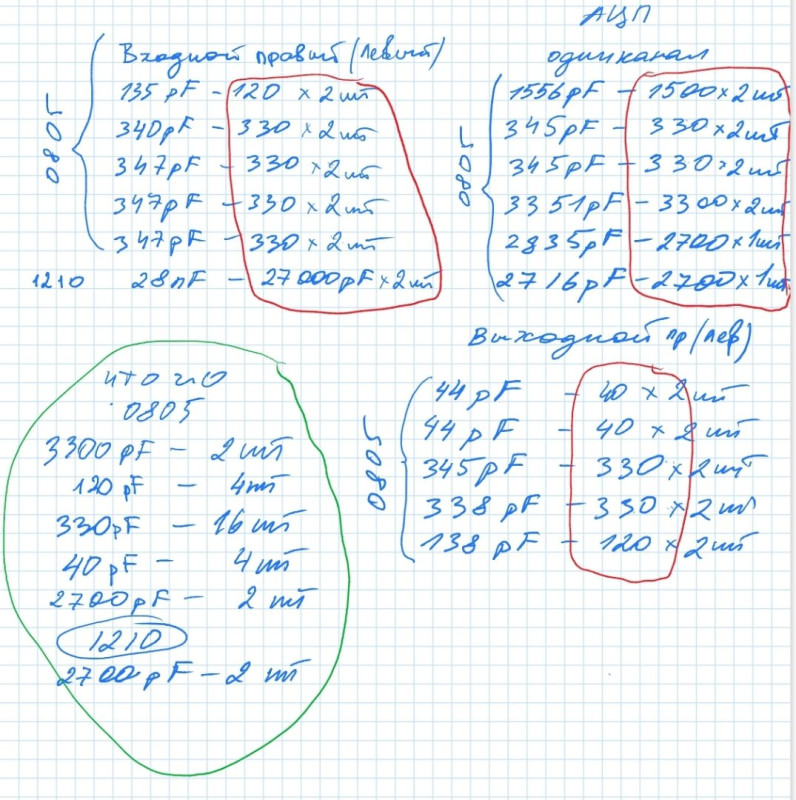 Входной правый (левый)
0805
135 pF - 120 x 2 шт
340 pF - 330 x 2 шт
347 pF - 330 x 2 шт
347 pF - 330 x 2 шт
347 pF - 330 x 2 шт
1210 28 nF - 27000 pF x 2 шт
АЦП
один канал
0805
1556 pF - 1500 x 2 шт
345 pF - 330 x 2 шт
345 pF - 330 x 2 шт
3351 pF - 3300 x 2 шт
2835 pF - 2700 x 1 шт
2716 pF - 2700 x 1 шт
Выходной пр (лев)
0805
44 pF - 40 x 2 шт
44 pF - 40 x 2 шт
345 pF - 330 x 2 шт
338 pF - 330 x 2 шт
138 pF - 120 x 2 шт
итого
0805
3300 pF - 2 шт
120 pF - 4 шт
330 pF - 16 шт
40 pF - 4 шт
2700 pF - 2 шт
1210
2700 pF - 2 шт